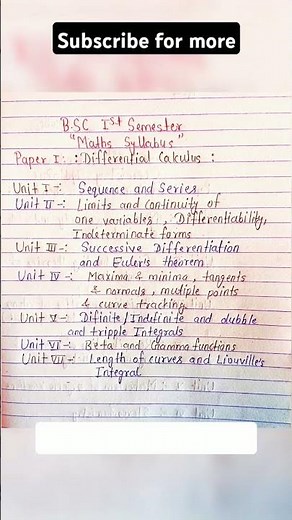 Subscribe for more
B.SC Ist Semester
"Maths Syllabus"
Paper I: :Differential Calculus :
Unit I -: Sequence and Series
Unit II -: Limits and Continuity of
one variables, Differentiability,
Indeterminate forms
Unit III -: Successive Differentiation
and Euler's theorem
Unit IV -: Maxima & minima, tangents
& normals, mutiple points
& curve tracking
Unit V -: Difinite/Indefinite and dubble
and tripple Integrals
Unit VI -: Beta and Gamma functions
Unit VII -: Length of curves and Liouville's
Integral